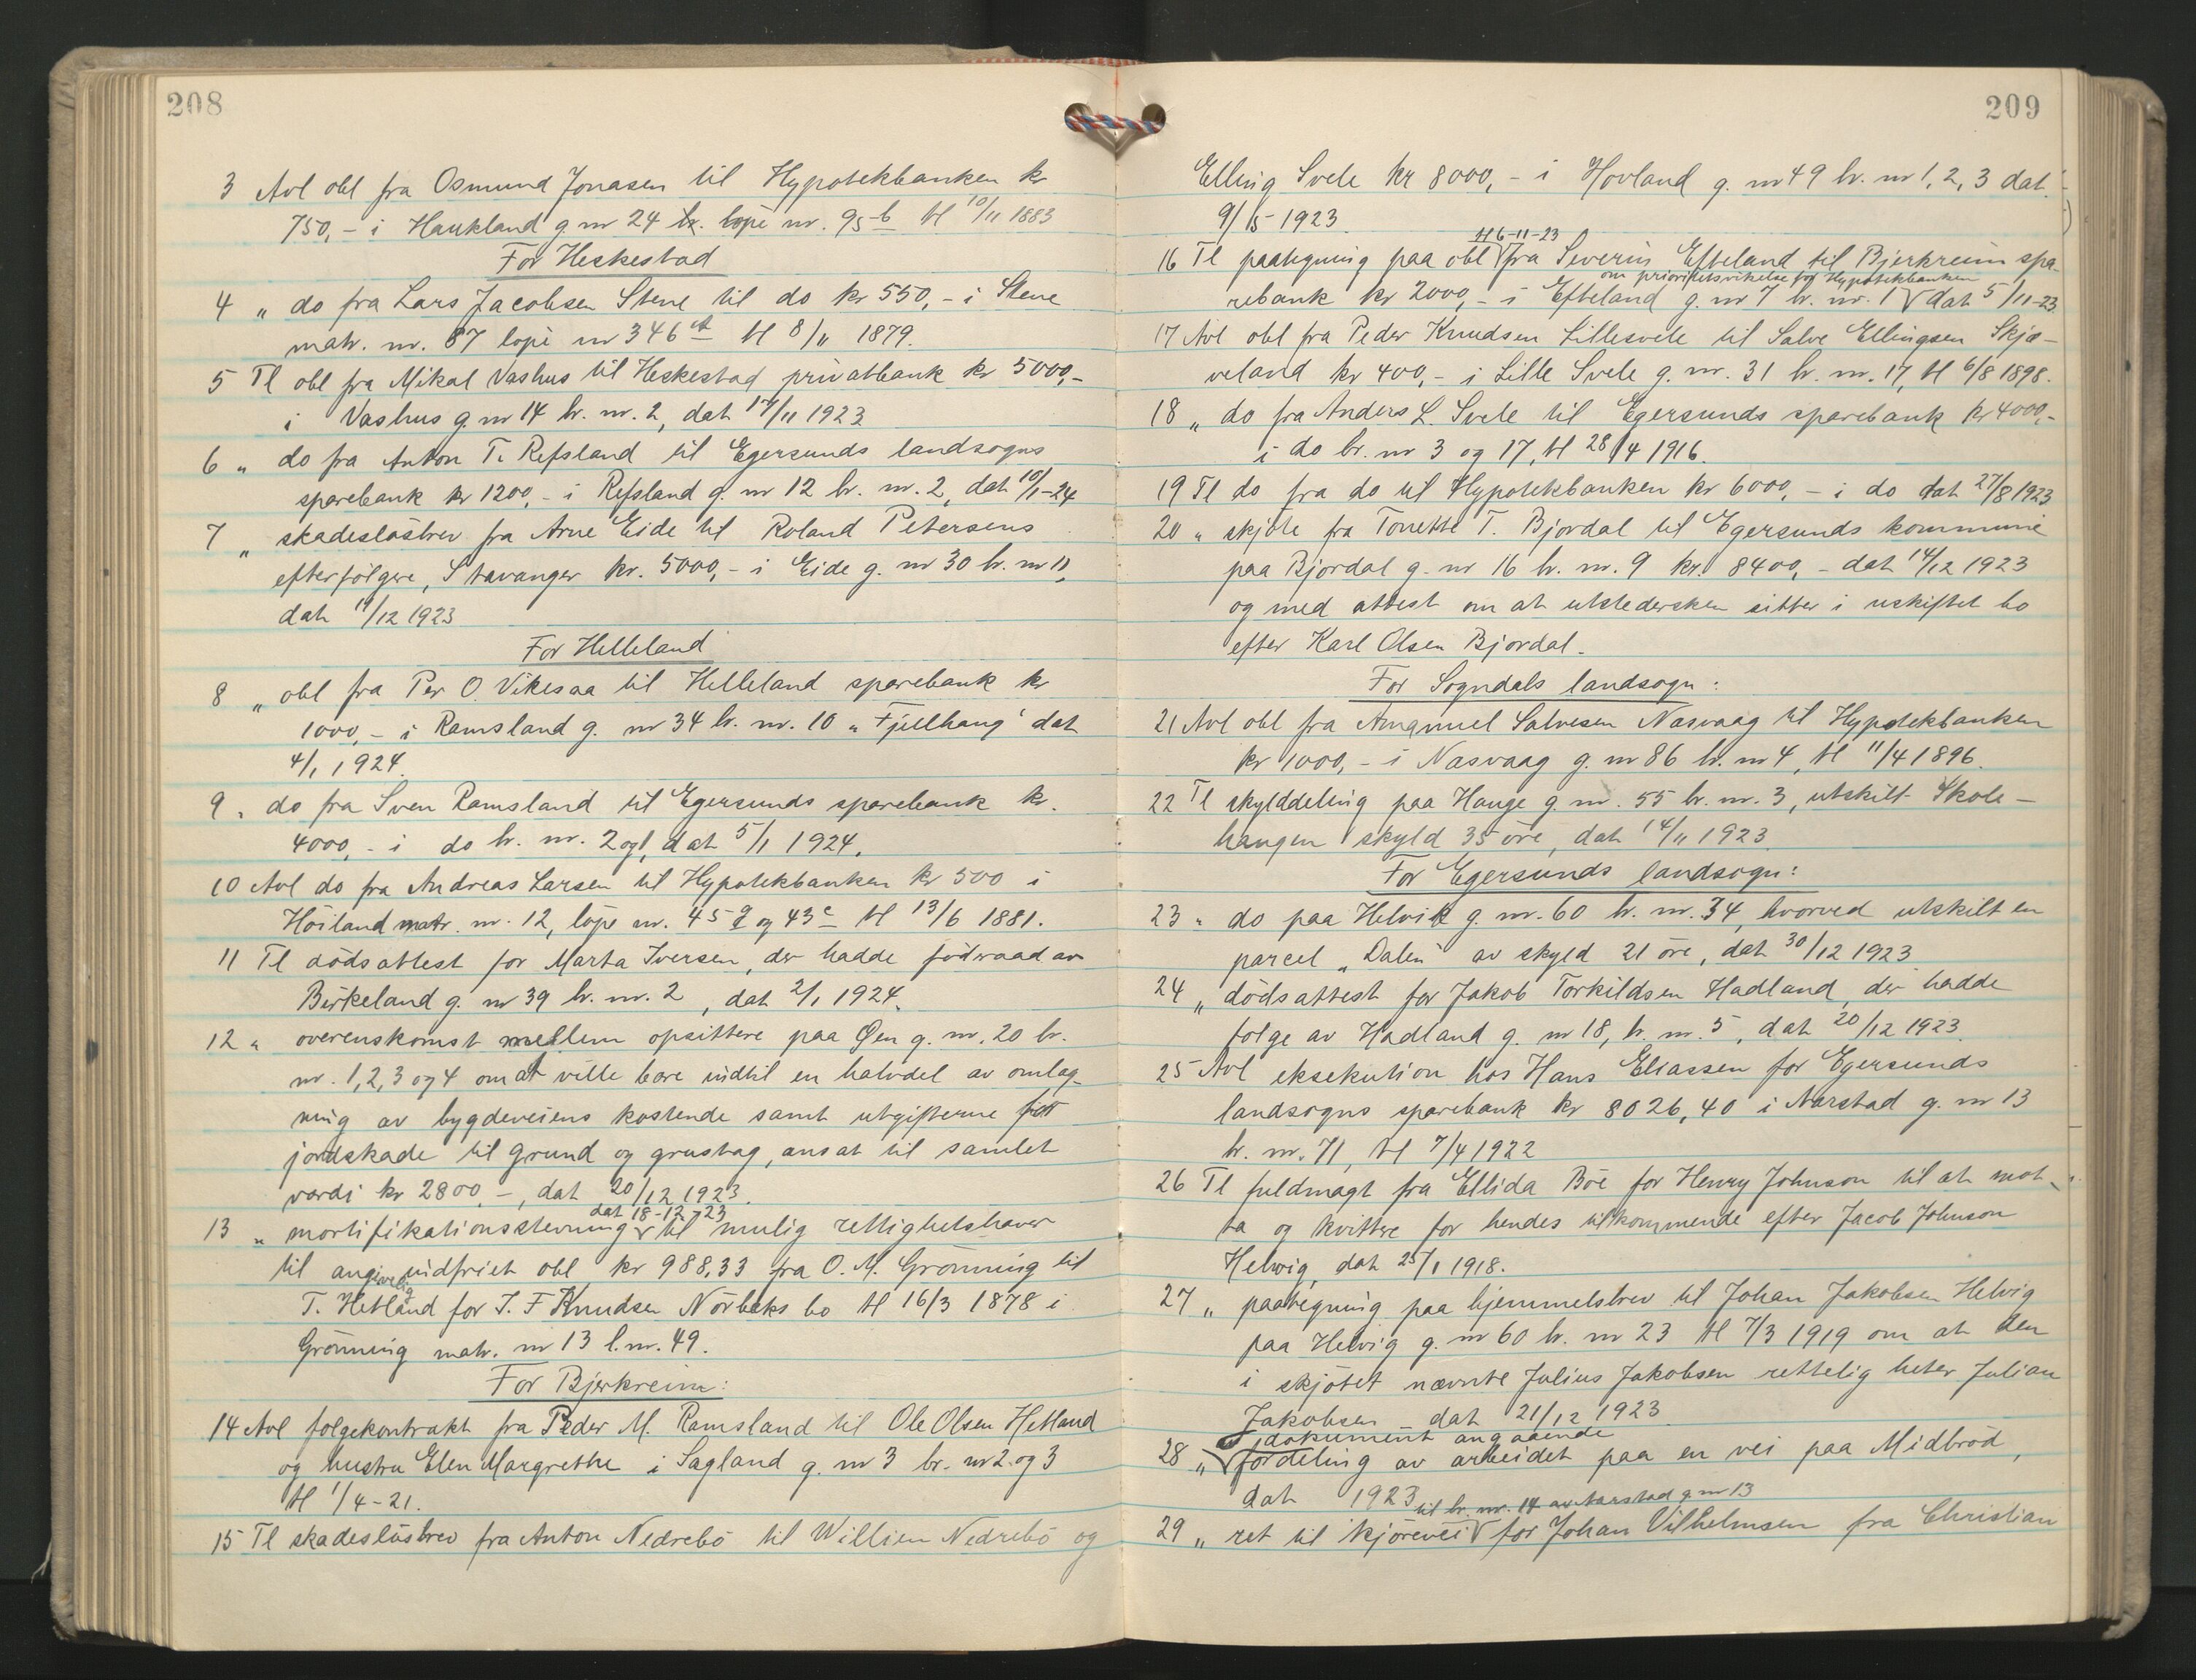 208
3 Avl obl fra Osmund Jonasen til Hypotekbanken kr
750,- i Haukland g. nr 24 br. løpe nr. 95 b tl 10/11 1883
For Heskestad
4 " do fra Lars Jacobsen Stene til do kr 550,- i Stene
matr. nr. 87 løpe nr 346 a tl 8/11 1879.
5 Tl obl fra Mikal Vashus til Heskestad privatbank kr 5000,-
i Vashus g. nr 14 br. nr. 2, dat 17/11 1923
6 " do fra Anton T. Refsland til Egersunds landsogns
sparebank kr 1200,- i Refsland g. nr 12 br. nr. 2, dat 10/1-24
7 " skadesløsbrev fra Arne Eide til Roland Petersens
efterfølgere, Stavanger kr. 5000,- i Eide g. nr 30 br. nr 11,
dat 19/12 1923
For Helleland
8 " obl fra Per O. Vikesaa til Helleland sparebank kr
1000,- i Ramsland g. nr 34 br. nr. 10 "Fjellhaug" dat
4/1 1924.
9 " do fra Sven Ramsland til Egersunds sparebank kr.
4000,- i do br. nr. 2 og 1, dat 5/1 1924.
10 Avl do fra Andreas Larsen til Hypotekbanken kr 500 i
Høiland matr. nr. 12, løpe nr. 45 g og 43 c tl 13/6 1881.
11 Tl dødsattest for Marta Iversen, der hadde fødraad av
Birkeland g. nr 39 br. nr. 2, dat 2/1 1924.
12 " overenskomst mellem opsittere paa Øen g. nr. 20 br.
nr. 1, 2, 3 og 4 om at ville bære indtil en halvdel av omlæg-
ning av bygdeveiens kostende samt utgifterne for
jordskade til grund og grustag, ansat til samlet
værdi kr 2800,-, dat 20/12 1923.
dat 18-12-23
13 " mortifikationsstevning til mulig rettighetshaver
til angivelig indfriet obl kr 988,33 fra O. M. Grønning til
T. Hetland for T. F Knudsen Nørbeks bo tl 16/3 1878 i
Grønning matr. nr 13 l. nr. 49.
For Bjerkreim:
14 Avl følgekontrakt fra Peder M. Ramsland til Ole Olsen Hetland
og hustru Elen Margrethe i Sagland g. nr 3 br. nr 2 og 3
tl 1/4-21.
15 Tl skadesløsbrev fra Anton Nedrebø til Willien Nedrebø og
209
Elling Svele kr 8000,- i Hovland g. nr 49 br. nr 1, 2, 3 dat.
9/15-1923
tl 6-11-23
16 Tl paategning paa obl fra Severin Efteland til Bjerkreim spa-
om prioritetsvikelse for Hypotekbanken
rebank kr 2000,- i Efteland g. nr 7 br. nr. 1 dat 5/11-23
17 Avl obl fra Peder Knudsen Lillesvele til Salve Ellingsen Skjæ-
veland kr 400,- i Lille Svele g. nr. 31 br. nr. 17, tl 6/8 1898.
18 " do fra Anders L. Svele til Egersunds sparebank kr 4000,-
i do br. nr 3 og 17, tl 28/4 1916.
19 Tl do fra do til Hypotekbanken kr 6000,- i do dat 27/8 1923
20 " skjøte fra Tonette T. Bjordal til Egersunds kommune
paa Bjordal g. nr 16 br. nr. 9 kr. 8400,- dat 14/12 1923
og med attest om at utstedersken sitter i uskiftet bo
efter Karl Olsen Bjordal.
For Sogndals landsogn:
21 Avl obl fra Amanuel Salvesen Nasvaag til Hypotekbanken
kr 1000,- i Nasvaag g. nr 86 br. nr 4, tl 11/4 1896.
22 Tl skylddeling paa Hauge g. nr. 55 br. nr. 3, utskilt Skole-
haugen skyld 35 øre, dat 14/11 1923.
For Egersunds landsogn:
23 " do paa Helvik g. nr. 60 br. nr. 34, hvorved utskilt en
parcel "Dalen" av skyld 21 øre, dat 30/12 1923
24 " dødsattest for Jakob Torkildsen Hadland, der hadde
følge av Hadland g. nr 18, br. nr. 5, dat 20/12 1923.
25 Avl eksekution hos Hans Eliassen for Egersunds
landsogns sparebank kr 8026,40 i Aarstad g. nr 13
br. nr. 71, tl 7/4 1922
26 Tl fuldmagt fra Ellida Bøe for Henry Johnson til at mot-
ta og kvittere for hendes tilkommende efter Jacob Johnson
Helvig, dat 25/1 1918.
27 " paategning paa hjemmelsbrev til Johan Jakobsen Helvig
paa Helvig g. nr 60 br. nr 23 tl 7/3 1919 om at den
i skjøtet nævnte Julius Jakobsen rettelig heter Julian
Jakobsen - dat 21/12 1923.
dokument angaaende
28 " fordeling av arbeidet paa en vei paa Midbrød,
dat 1923
til br. nr. 14 av Aarstad g nr 13
29 " ret til kjørevei for Johan Vilhelmsen fra Christian